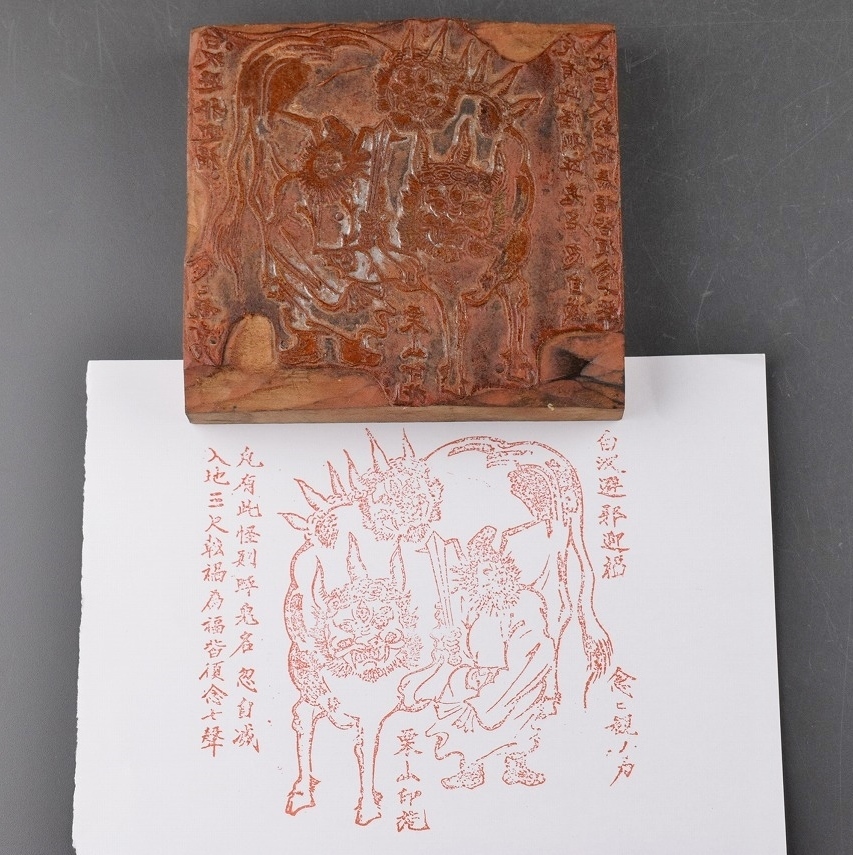 白澤避邪迎福
念彼觀ノ力
栗山印施
凡有此怪則呼鬼名忽自滅
入地三尺転禍為福皆復念七聲